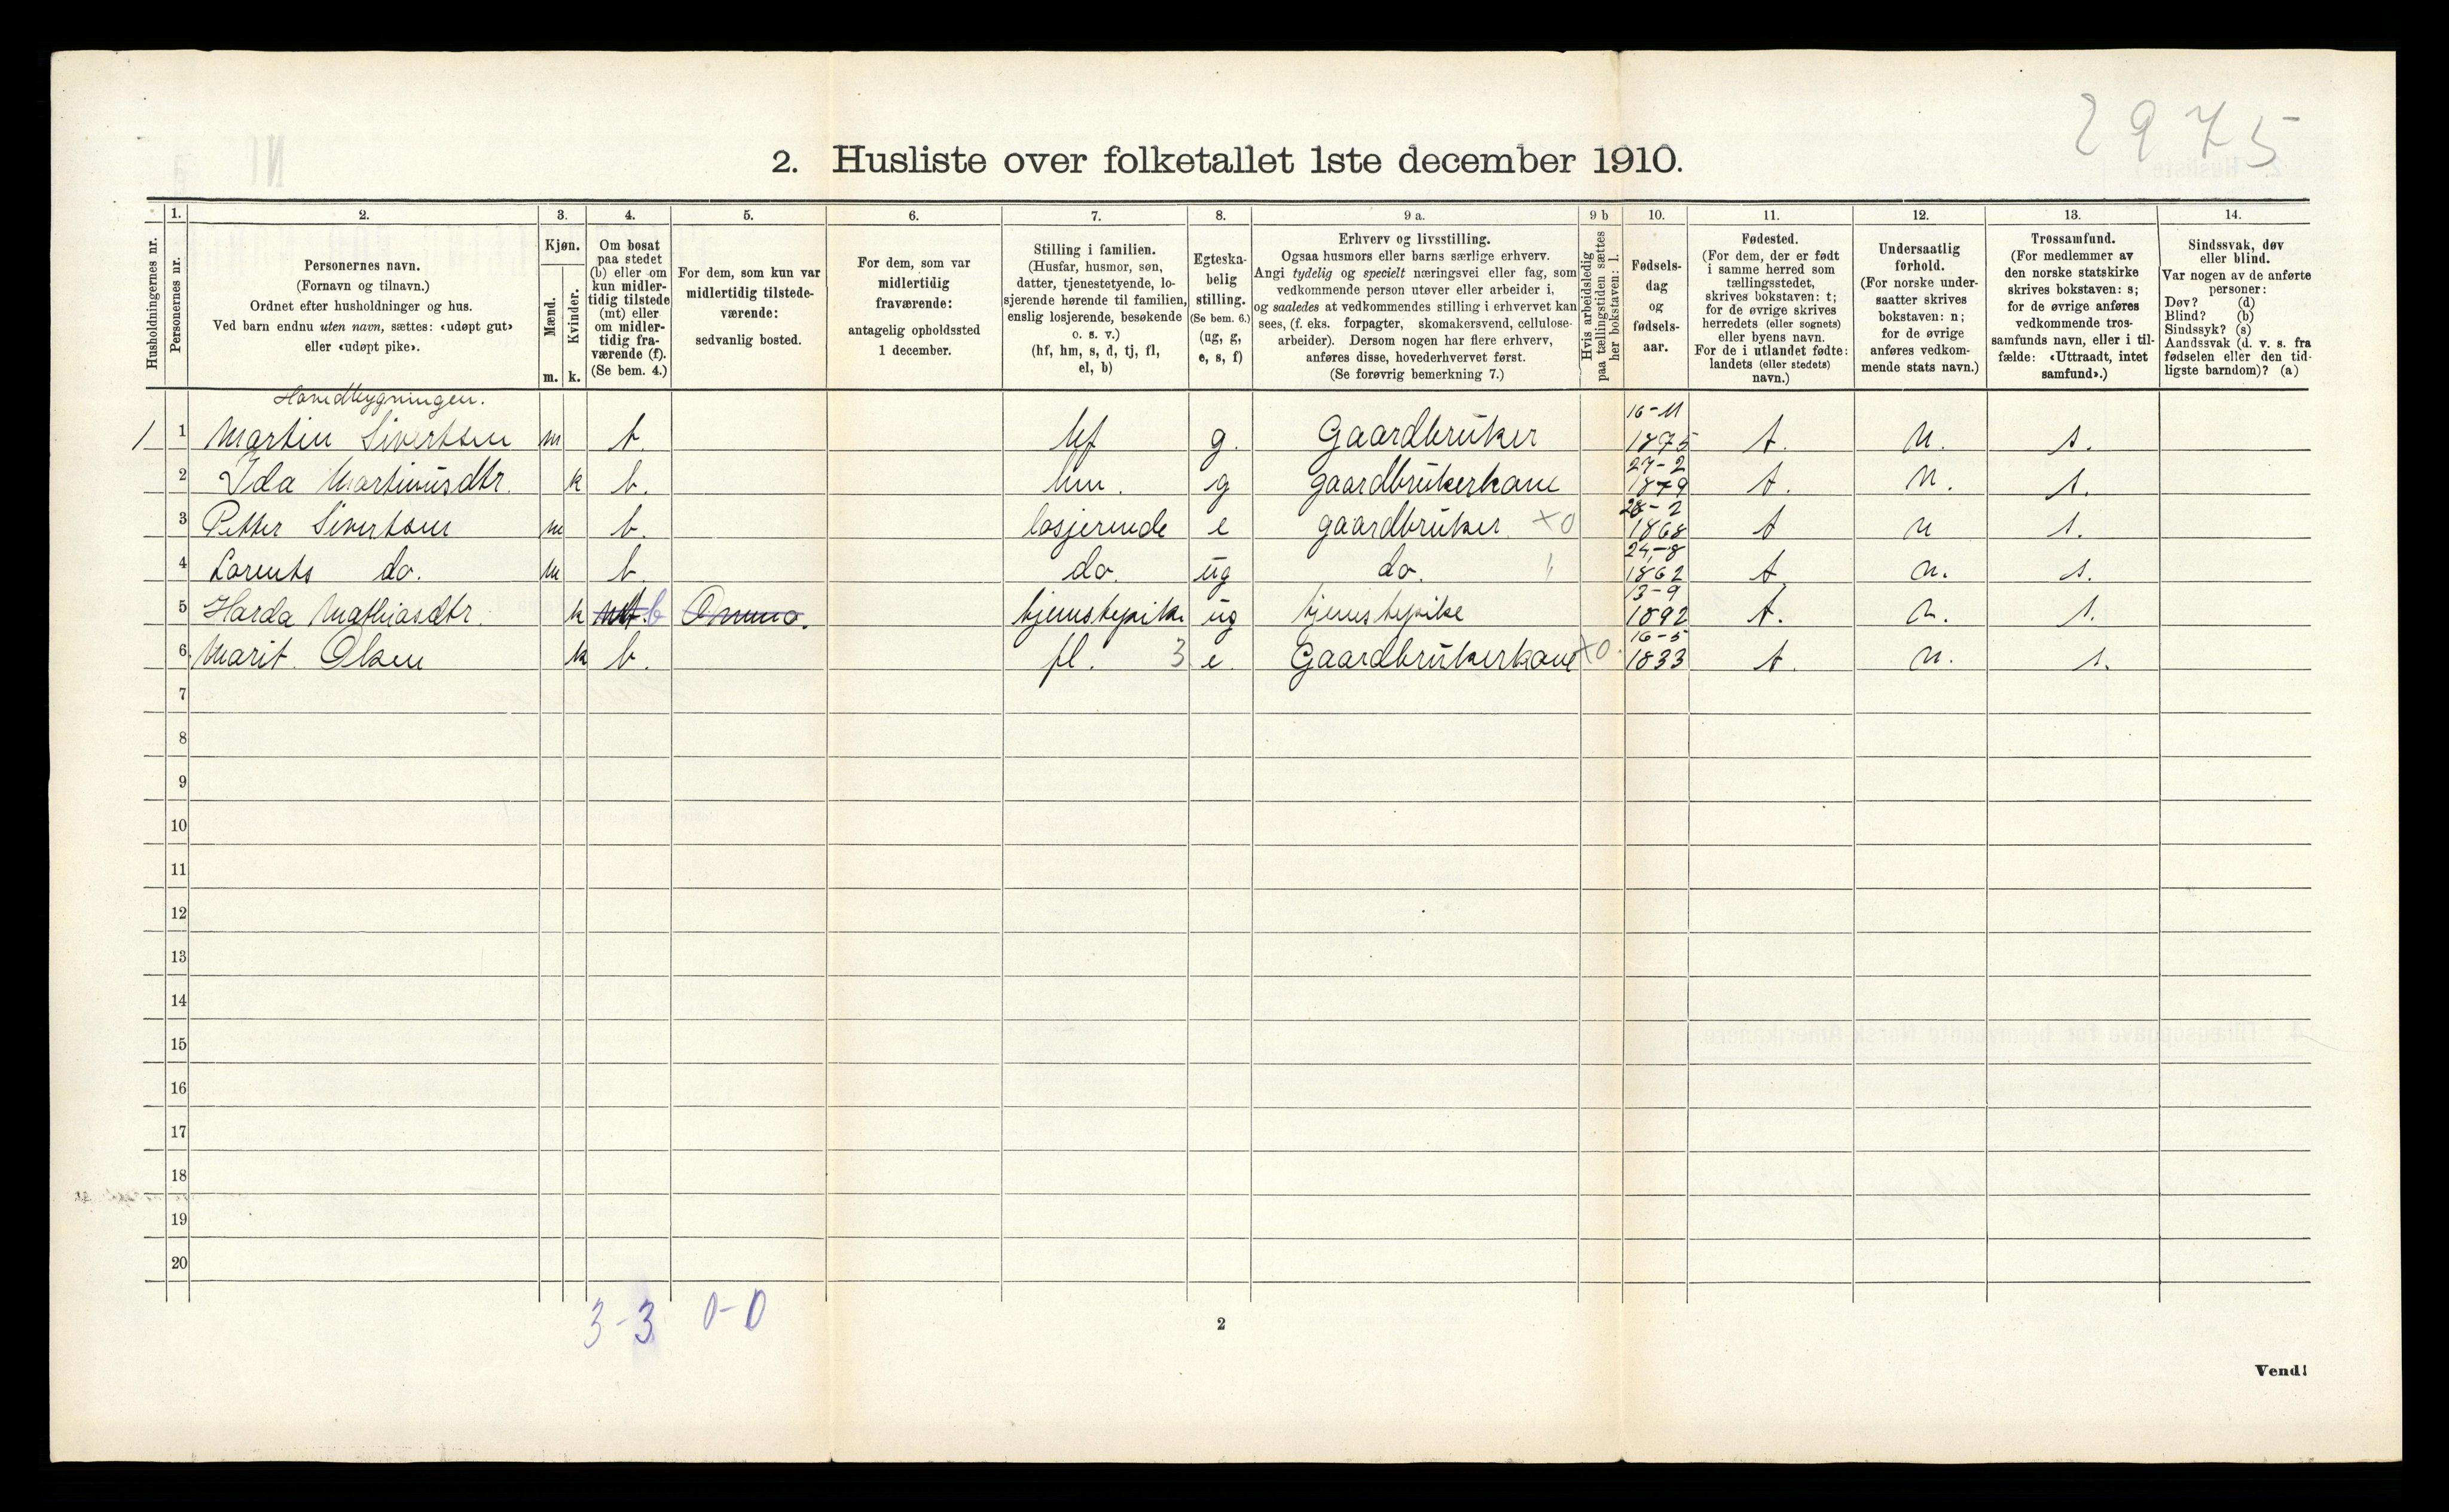 2975
2. Husliste over folketallet 1ste december 1910.
1. 2. 3. 4. 5. 6. 7. 8. 9 a. 9 b 10. 11. 12. 13. 14.
Husholdningernes nr.
Personernes nr.
Personernes navn.
(Fornavn og tilnavn.)
Ordnet efter husholdninger og hus.
Ved barn endnu uten navn, sættes: «udøpt gut»
eller «udøpt pike».
Kjøn.
Mænd.
Kvinder.
m. k.
Om bosat
paa stedet
(b) eller om
kun midler-
tidig tilstede
(mt) eller
om midler-
tidig fra-
værende (f).
(Se bem. 4.)
For dem, som kun var
midlertidig tilstede-
værende:
sedvanlig bosted.
For dem, som var
midlertidig
fraværende:
antagelig opholdssted
1 december.
Stilling i familien.
(Husfar, husmor, søn,
datter, tjenestetyende, lo-
sjerende hørende til familien,
enslig losjerende, besøkende
o. s. v.)
(hf, hm, s, d, tj, fl,
el, b)
Egteska-
belig
stilling.
(Se bem. 6.)
(ug, g,
e, s, f)
Erhverv og livsstilling.
Ogsaa husmors eller barns særlige erhverv.
Angi tydelig og specielt næringsvei eller fag, som
vedkommende person utøver eller arbeider i,
og saaledes at vedkommendes stilling i erhvervet kan
sees, (f. eks. forpagter, skomakersvend, cellulose-
arbeider). Dersom nogen har flere erhverv,
anføres disse, hovederhvervet først.
(Se forøvrig bemerkning 7.)
Hvis arbeidsledig
paa tællingstiden sættes
her bokstaven: l.
Fødsels-
dag
og
fødsels-
aar.
Fødested.
(For dem, der er født
i samme herred som
tællingsstedet,
skrives bokstaven: t;
for de øvrige skrives
herredets (eller sognets)
eller byens navn.
For de i utlandet fødte:
landets (eller stedets)
navn.)
Undersaatlig
forhold.
(For norske under-
saatter skrives
bokstaven: n;
for de øvrige
anføres vedkom-
mende stats navn.)
Trossamfund.
(For medlemmer av
den norske statskirke
skrives bokstaven: s;
for de øvrige anføres
vedkommende tros-
samfunds navn, eller i til-
fælde: «Uttraadt, intet
samfund».)
Sindssvak, døv
eller blind.
Var nogen av de anførte
personer:
Døv? (d)
Blind? (b)
Sindssyk? (s)
Aandssvak (d. v. s. fra
fødselen eller den tid-
ligste barndom)? (a)
Hovedbygningen.
1 1 Martin Sivertsen m b. hf g. Gaardbruker 16-11 1875 t. n. s.
2 Ida Martinusdtr. k b. hm. g gaardbrukerkone 27-2 1879 t. n. s.
3 Petter Sivertsen m b. losjerende e gaardbruker x0 28-2 1868 t n s.
4 Lorents do. m b. do. ug do. " 24-8 1862 t n. s.
5 Harda Mathiasdtr. k mt. b tjenstepike ug tjenstepike 13-9 1892 t. n. s.
6 Marit Olsen k b. fl. 3 e. Gaardbrukerkone x0. 16-5 1833 t. n. s.
7
8
9
10
11
12
13
14
15
16
17
18
19
20
3-3 0-0
2
Vend!